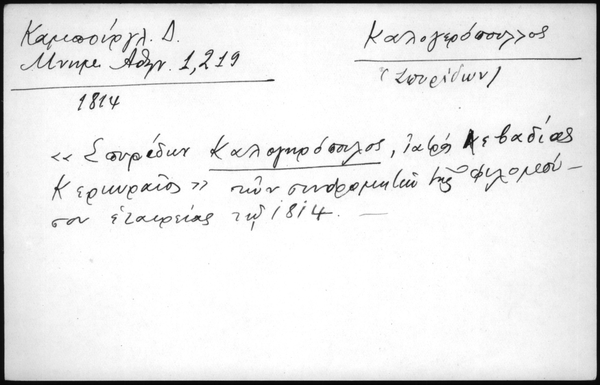 Καμπούργλ. Δ.
Μνημ. Αθην. 1, 219
1814
Καλογερόπουλος
(Σπυρίδων)
«Σπυρίδων Καλογηρόπουλος, Ιατρός Λεβαδίας
Κερκυραίος» των συνδρομητών της Φιλομούσου
εταιρείας τω 1814. —